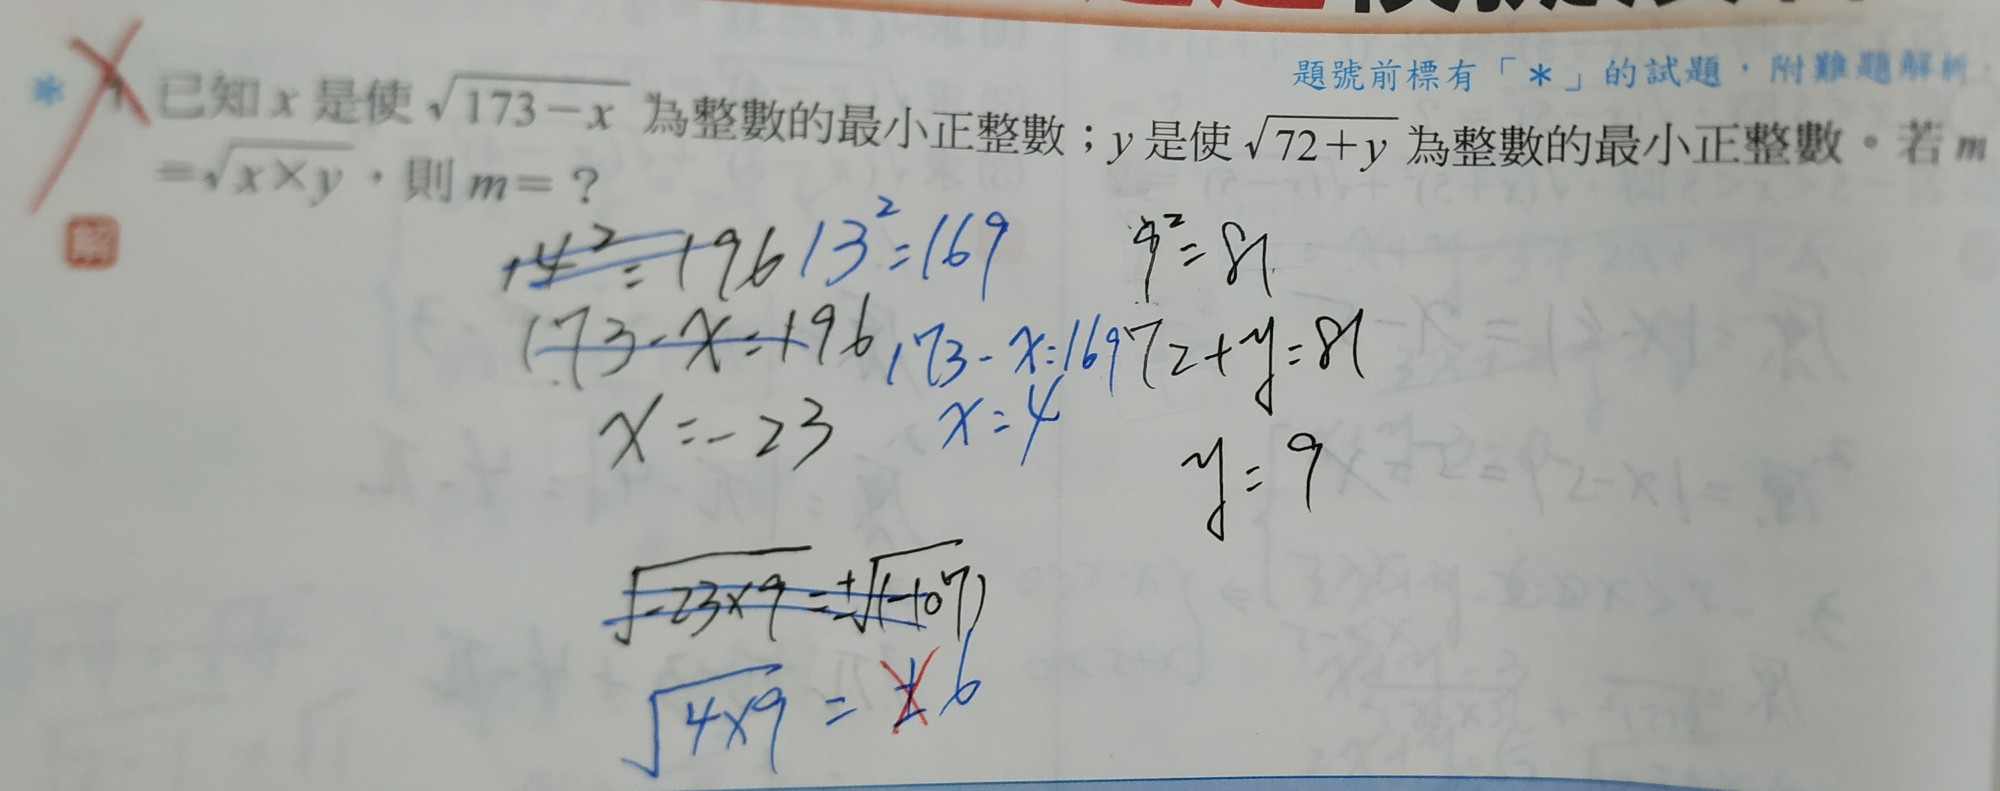 題號前標有「＊」的試題，附難題解析
* 1 已知 x 是使 √(173－x) 為整數的最小正整數；y 是使 √(72＋y) 為整數的最小正整數。若 m
＝√(x×y)，則 m＝？
解
14²=196 13²=169 9²=81
173-x=196 173-x=169 72+y=81
x=-23 x=4 y=9
√(-23×9)=±√(-107)
√(4×9)=±6